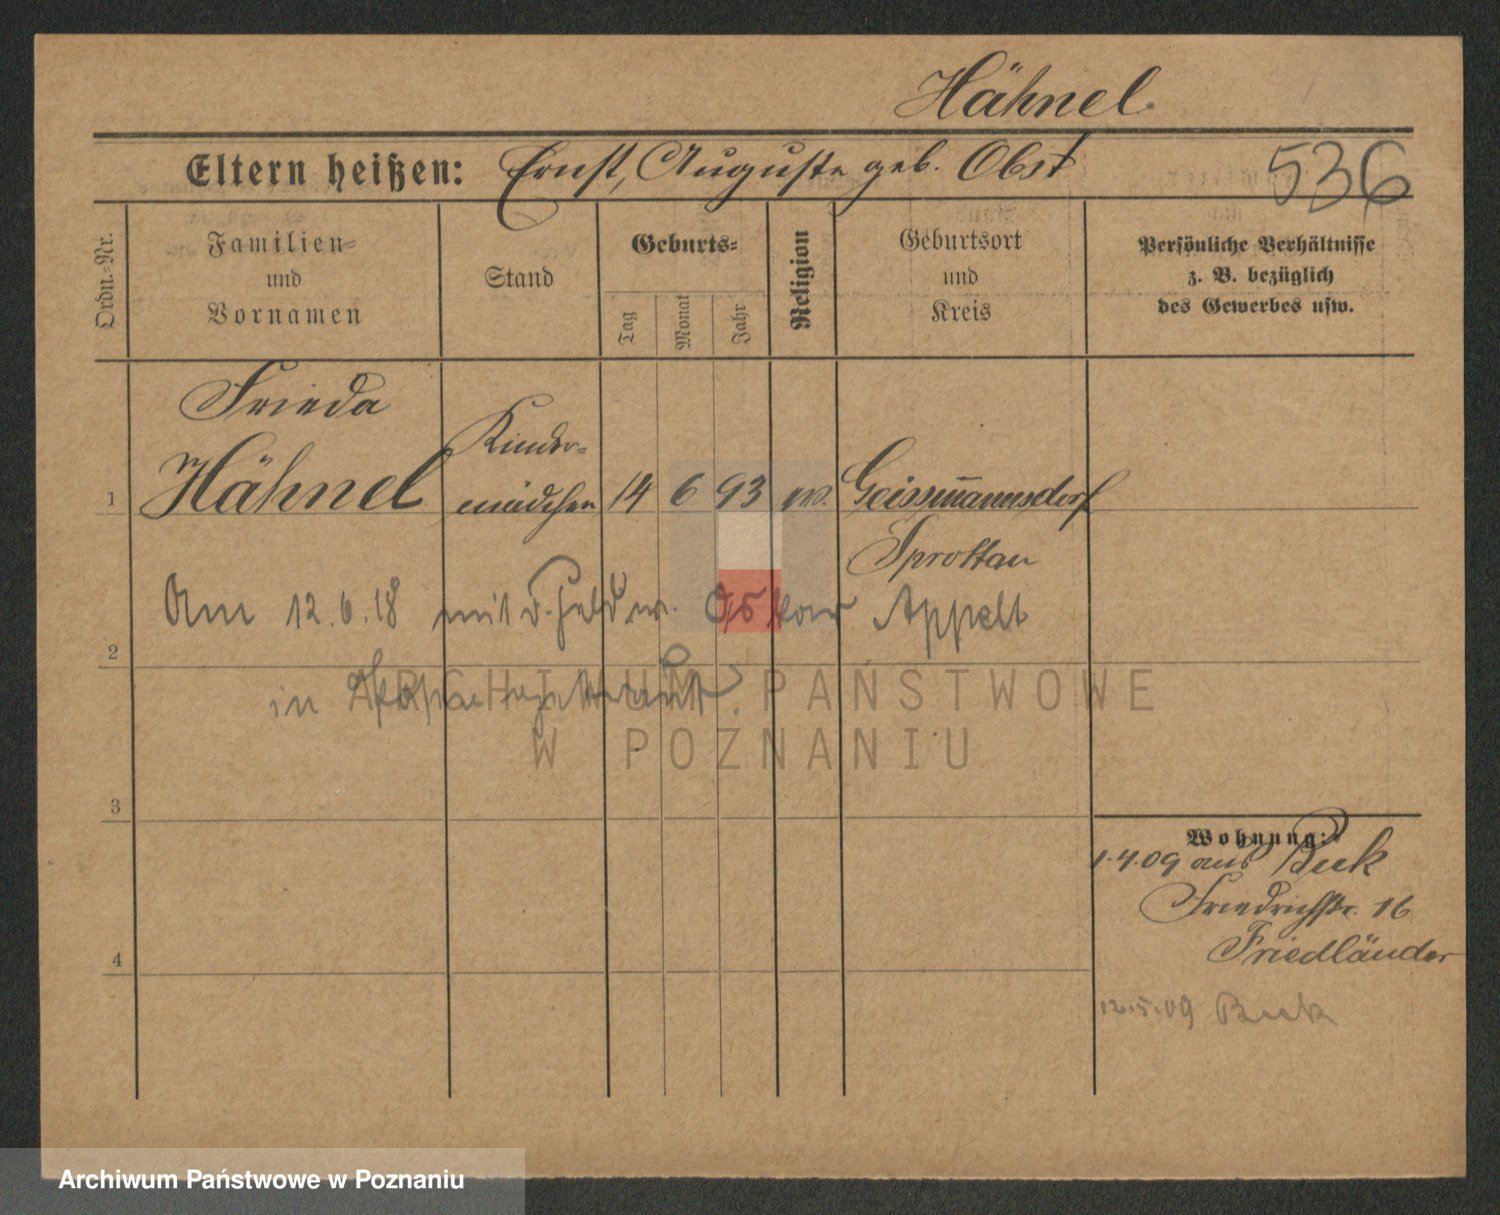 Hähnel
Eltern heißen: Ernst, Auguste geb. Obst
536
Ordn.-Nr.
Familien-
und
Vornamen
Stand
Geburts-
Tag
Monat
Jahr
Religion
Geburtsort
und
Kreis
Persönliche Verhältnisse
z. B. bezüglich
des Gewerbes usw.
Frieda
Kinder-
1 Hähnel mädchen 14 6 93 ev. Geissmannsdorf
Sprottau
Am 12.6.18 mit d. Feldw. Oskar Appelt
2
in getraut.
ARCHIWUM PAŃSTWOWE
W POZNANIU
3
Wohnung:
1.4.09 aus Beek
Friedrichstr. 16
Friedländer
4
12.5.09 Beek
Archiwum Państwowe w Poznaniu